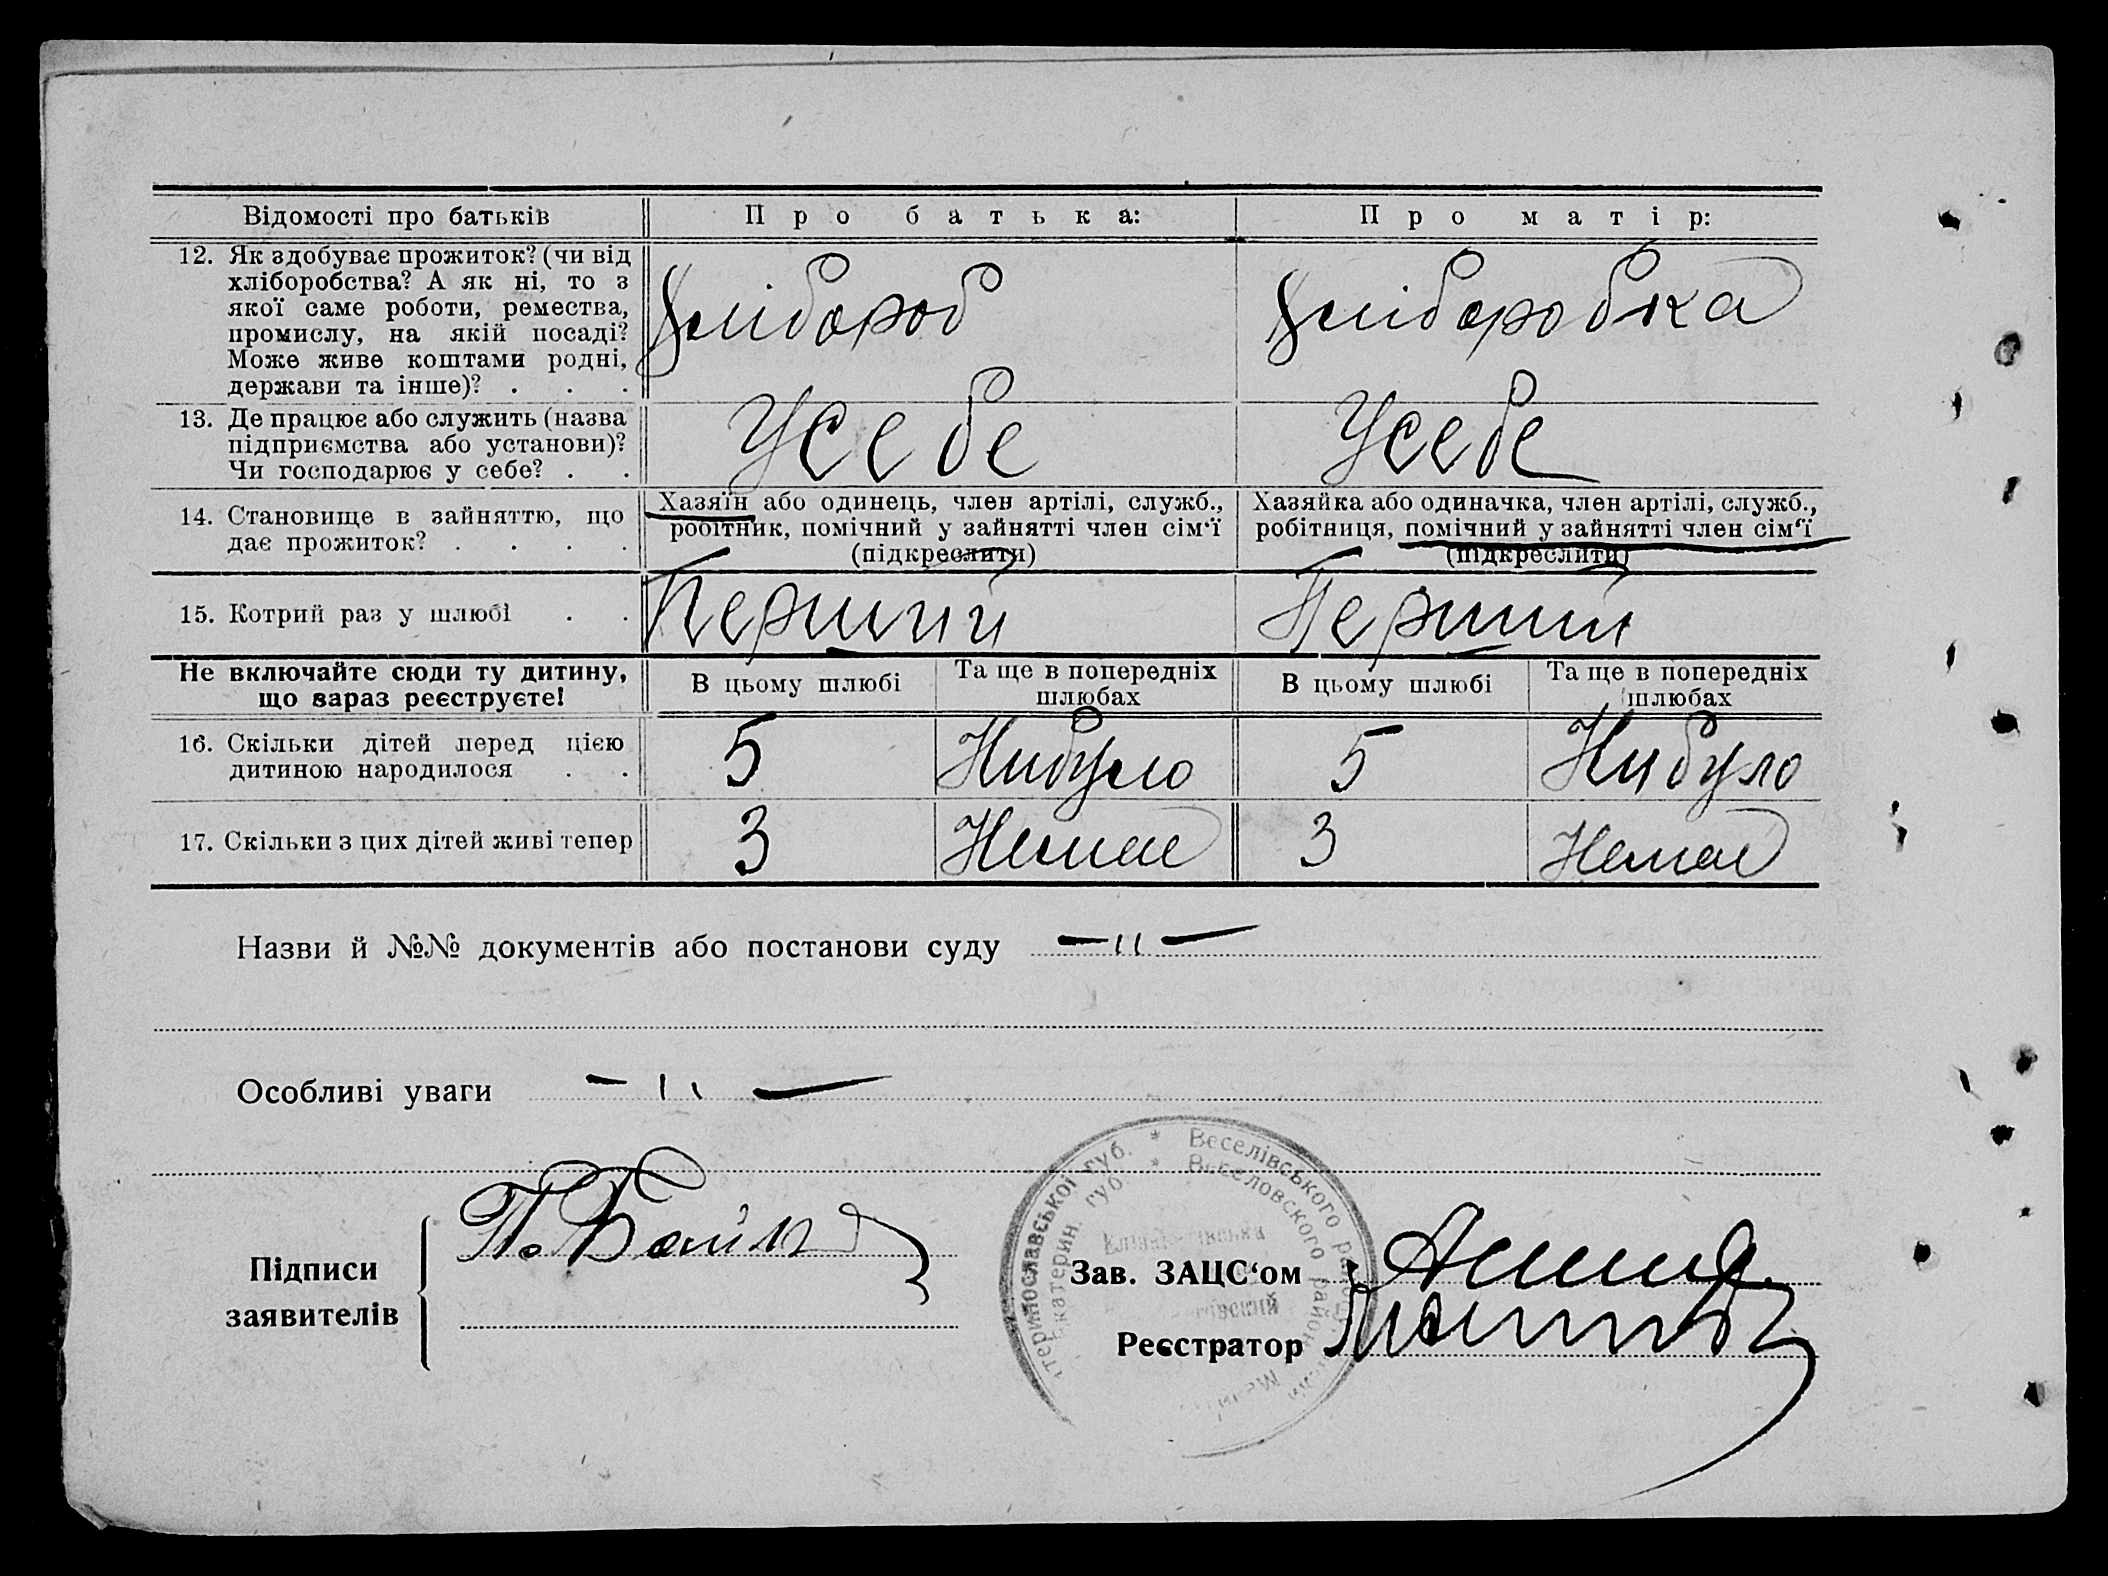 Відомості про батьків
Про батька:
Про матір:
12. Як здобуває прожиток? (чи від
хліборобства? А як ні, то з
якої саме роботи, ремества,
промислу, на якій посаді?
Може живе коштами родні,
держави та інше)? . . .
Хлібороб
Хліборобка
13. Де працює або служить (назва
підприємства або установи)?
Чи господарює у себе? . .
Усебе
Усебе
14. Становище в зайняттю, що
дає прожиток? . . . .
Хазяїн або одинець, член артілі, служб.,
робітник, помічний у зайнятті член сім‘ї
(підкреслити)
Хазяйка або одиначка, член артілі, служб.,
робітниця, помічний у зайнятті член сім‘ї
(підкреслити)
15. Котрий раз у шлюбі . .
Перший
Перший
Не включайте сюди ту дитину,
що зараз реєструєте!
В цьому шлюбі
Та ще в попередніх
шлюбах
В цьому шлюбі
Та ще в попередніх
шлюбах
16. Скільки дітей перед цією
дитиною народилося . .
5
Нибуло
5
Нибуло
17. Скільки з цих дітей живі тепер
3
Немае
3
Немае
Назви й №№ документів або постанови суду — 〃 —
Особливі уваги — 〃 —
Підписи
заявителів
П. Бойко
Зав. ЗАЦС‘ом
Реєстратор
Веселівського району
Веселовского район
теринославської губ. *
Екатерин. губ. *